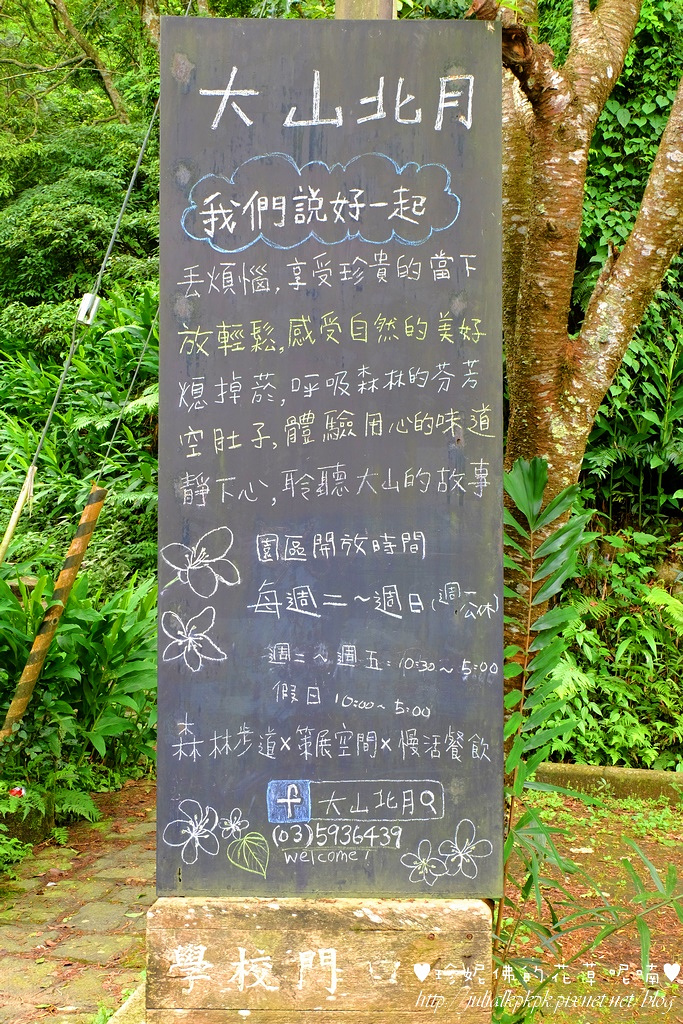 大山北月
我們說好一起
丟煩惱,享受珍貴的當下
放輕鬆,感受自然的美好
熄掉菸,呼吸森林的芬芳
空肚子,體驗用心的味道
靜下心,聆聽大山的故事
園區開放時間
每週二~週日(週一公休)
週二~週五:10:30~5:00
假日 10:00~5:00
森林步道×策展空間×慢活餐飲
f 大山北月
(03)5936439
welcome!
學校門
♥珍妮佛的花草呢喃♥